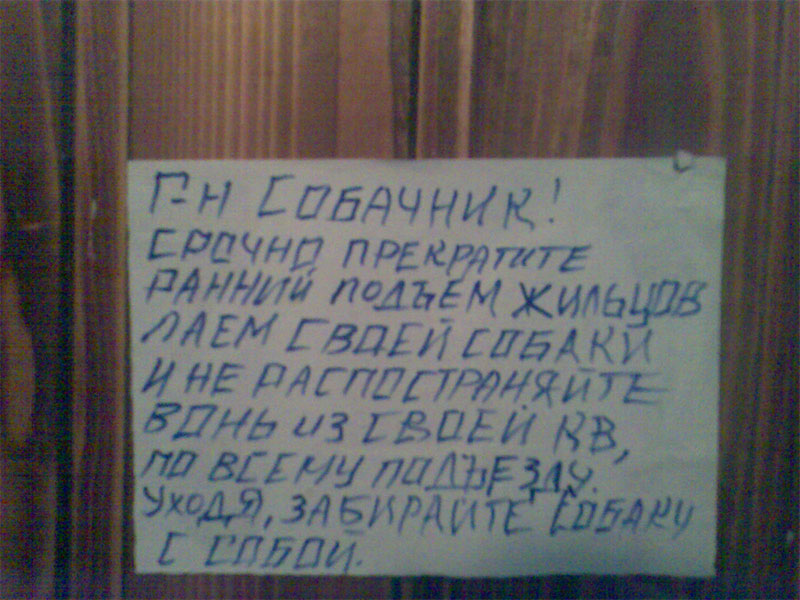 Г-Н СОБАЧНИК!
СРОЧНО ПРЕКРАТИТЕ
РАННИЙ ПОДЪЕМ ЖИЛЬЦОВ
ЛАЕМ СВОЕЙ СОБАКИ
И НЕ РАСПОСТРАНЯЙТЕ
ВОНЬ ИЗ СВОЕЙ КВ,
ПО ВСЕМУ ПОДЪЕЗДУ.
УХОДЯ, ЗАБИРАЙТЕ СОБАКУ
С СОБОЙ.